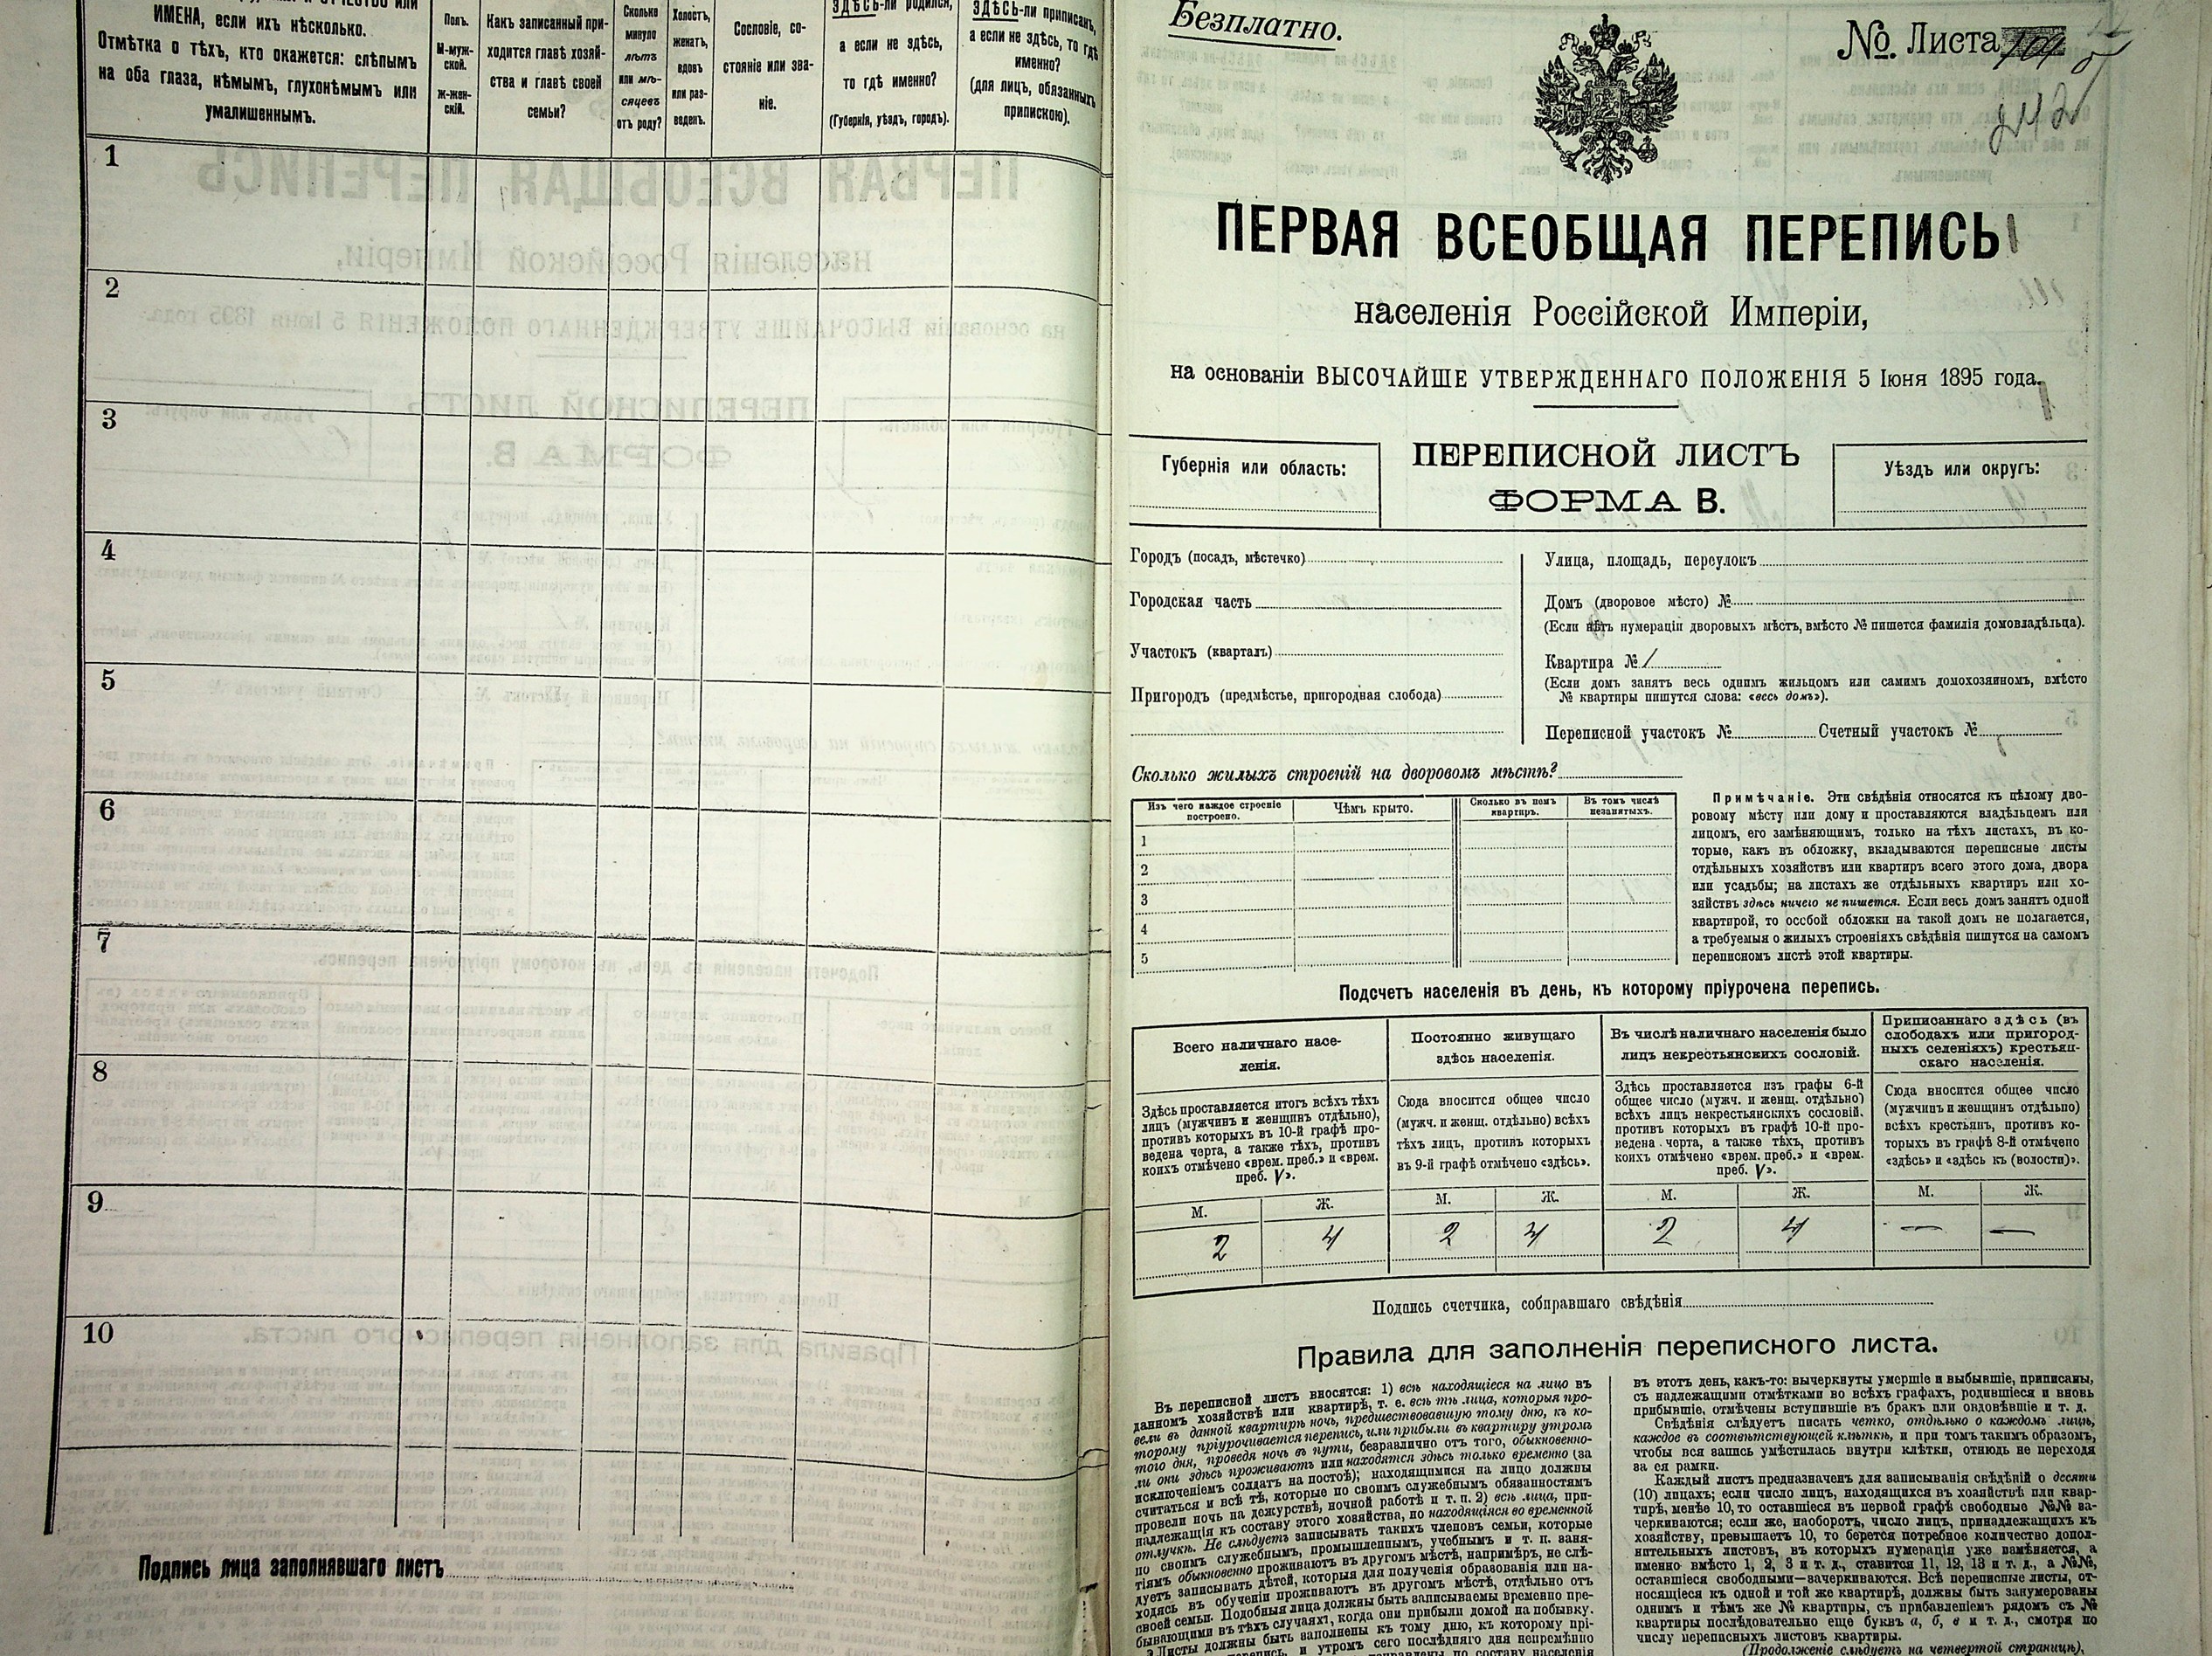 ИМЕНА, если ихъ нѣсколько.
Отмѣтка о тѣхъ, кто окажется: слѣпымъ
на оба глаза, нѣмымъ, глухонѣмымъ или
умалишеннымъ.
Полъ.
М-муж-
ской.
Ж-жен-
скій.
Какъ записанный при-
ходится главѣ хозяй-
ства и главѣ своей
семьи?
Сколько
минуло
лѣтъ
или мѣ-
сяцевъ
отъ роду?
Холостъ,
женатъ,
вдовъ
или раз-
веденъ.
Сословіе, со-
стояніе или зва-
ніе.
ЗДѢСЬ-ли родился,
а если не здѣсь,
то гдѣ именно?
(Губернія, уѣздъ, городъ).
ЗДѢСЬ-ли приписанъ,
а если не здѣсь, то гдѣ
именно?
(для лицъ, обязанныхъ
припискою).
1
2
3
4
5
6
7
8
9
10
Подпись лица заполнявшаго листъ
Безплатно.
№. Листа
242
ПЕРВАЯ ВСЕОБЩАЯ ПЕРЕПИСЬ
населенія Россійской Имперіи,
на основаніи ВЫСОЧАЙШЕ УТВЕРЖДЕННАГО ПОЛОЖЕНІЯ 5 Іюня 1895 года.
Губернія или область:
ПЕРЕПИСНОЙ ЛИСТЪ
ФОРМА В.
Уѣздъ или округъ:
Городъ (посадъ, мѣстечко)
Городская часть
Участокъ (кварталъ)
Пригородъ (предмѣстье, пригородная слобода)
Улица, площадь, переулокъ
Домъ (дворовое мѣсто) №
(Если нѣтъ нумераціи дворовыхъ мѣстъ, вмѣсто № пишется фамилія домовладѣльца).
Квартира № 1
(Если домъ занятъ весь однимъ жильцомъ или самимъ домохозяиномъ, вмѣсто
№ квартиры пишутся слова: «весь домъ»).
Переписной участокъ № Счетный участокъ №
Сколько жилыхъ строеній на дворовомъ мѣстѣ?
Изъ чего каждое строеніе
построено.
Чѣмъ крыто.
Сколько въ немъ
квартиръ.
Въ томъ числѣ
незанятыхъ.
1
2
3
4
5
Примѣчаніе. Эти свѣдѣнія относятся къ цѣлому дво-
ровому мѣсту или дому и проставляются владѣльцемъ или
лицомъ, его замѣняющимъ, только на тѣхъ листахъ, въ ко-
торые, какъ въ обложку, вкладываются переписные листы
отдѣльныхъ хозяйствъ или квартиръ всего этого дома, двора
или усадьбы; на листахъ же отдѣльныхъ квартиръ или хо-
зяйствъ здѣсь ничего не пишется. Если весь домъ занятъ одной
квартирой, то особой обложки на такой домъ не полагается,
а требуемыя о жилыхъ строеніяхъ свѣдѣнія пишутся на самомъ
переписномъ листѣ этой квартиры.
Подсчетъ населенія въ день, къ которому пріурочена перепись.
Всего наличнаго насе-
ленія.
Здѣсь проставляется итогъ всѣхъ тѣхъ
лицъ (мужчинъ и женщинъ отдѣльно),
противъ которыхъ въ 10-й графѣ про-
ведена черта, а также тѣхъ, противъ
коихъ отмѣчено «врем. преб.» и «врем.
преб. V».
М. Ж.
2 4
Постоянно живущаго
здѣсь населенія.
Сюда вносится общее число
(мужч. и женщ. отдѣльно) всѣхъ
тѣхъ лицъ, противъ которыхъ
въ 9-й графѣ отмѣчено «здѣсь».
М. Ж.
2 4
Въ числѣ наличнаго населенія было
лицъ некрестьянскихъ сословій.
Здѣсь проставляется изъ графы 6-й
общее число (мужч. и женщ. отдѣльно)
всѣхъ лицъ некрестьянскихъ сословій,
противъ которыхъ въ графѣ 10-й про-
ведена черта, а также тѣхъ, противъ
коихъ отмѣчено «врем. преб.» и «врем.
преб. V».
М. Ж.
2 4
Приписаннаго здѣсь (въ
слободахъ или пригород-
ныхъ селеніяхъ) крестьян-
скаго населенія.
Сюда вносится общее число
(мужчинъ и женщинъ отдѣльно)
всѣхъ крестьянъ, противъ ко-
торыхъ въ графѣ 8-й отмѣчено
«здѣсь» и «здѣсь къ (волости)».
М. Ж.
— —
Подпись счетчика, собиравшаго свѣдѣнія
Правила для заполненія переписного листа.
Въ переписной листъ вносятся: 1) всѣ находящіеся на лицо въ
данномъ хозяйствѣ или квартирѣ, т. е. всѣ тѣ лица, которыя про-
вели въ данной квартирѣ ночь, предшествовавшую тому дню, къ ко-
торому пріурочивается перепись, или прибыли въ квартиру утромъ
того дня, проведя ночь въ пути, безразлично отъ того, обыкновенно-
ли они здѣсь проживаютъ или находятся здѣсь только временно (за
исключеніемъ солдатъ на постоѣ); находящимися на лицо должны
считаться и всѣ тѣ, которые по своимъ служебнымъ обязанностямъ
провели ночь на дежурствѣ, ночной работѣ и т. п. 2) всѣ лица, при-
надлежащія къ составу этого хозяйства, но находящіяся во временной
отлучкѣ. Не слѣдуетъ записывать такихъ членовъ семьи, которые
по своимъ служебнымъ, промышленнымъ, учебнымъ и т. п. заня-
тіямъ обыкновенно проживаютъ въ другомъ мѣстѣ, напримѣръ, не слѣ-
дуетъ записывать дѣтей, которыя для полученія образованія или на-
ходясь въ обученіи проживаютъ въ другомъ мѣстѣ, отдѣльно отъ
своей семьи. Подобныя лица должны быть записываемы временно пре-
бывающими въ тѣхъ случаяхъ, когда они прибыли домой на побывку.
Листы должны быть заполнены къ тому дню, къ которому прі-
перепись, и утромъ сего послѣдняго дня непремѣнно
по составу населенія
въ этотъ день, какъ-то: вычеркнуты умершіе и выбывшіе, приписаны,
съ надлежащими отмѣтками во всѣхъ графахъ, родившіеся и вновь
прибывшіе, отмѣчены вступившіе въ бракъ или овдовѣвшіе и т. д.
Свѣдѣнія слѣдуетъ писать четко, отдѣльно о каждомъ лицѣ,
каждое въ соотвѣтствующей клѣткѣ, и при томъ такимъ образомъ,
чтобы вся запись умѣстилась внутри клѣтки, отнюдь не переходя
за ея рамки.
Каждый листъ предназначенъ для записыванія свѣдѣній о десяти
(10) лицахъ; если число лицъ, находящихся въ хозяйствѣ или квар-
тирѣ, менѣе 10, то оставшіеся въ первой графѣ свободные №№ за-
черкиваются; если же, наоборотъ, число лицъ, принадлежащихъ къ
хозяйству, превышаетъ 10, то берется потребное количество допол-
нительныхъ листовъ, въ которыхъ нумерація уже измѣняется, а
именно вмѣсто 1, 2, 3 и т. д., ставится 11, 12, 13 и т. д., а №№,
оставшіеся свободными—зачеркиваются. Всѣ переписные листы, от-
носящіеся къ одной и той же квартирѣ, должны быть занумерованы
однимъ и тѣмъ же № квартиры, съ прибавленіемъ рядомъ съ №
квартиры послѣдовательно еще буквъ а, б, в и т. д., смотря по
числу переписныхъ листовъ квартиры.
(Продолженіе слѣдуетъ на четвертой страницѣ).